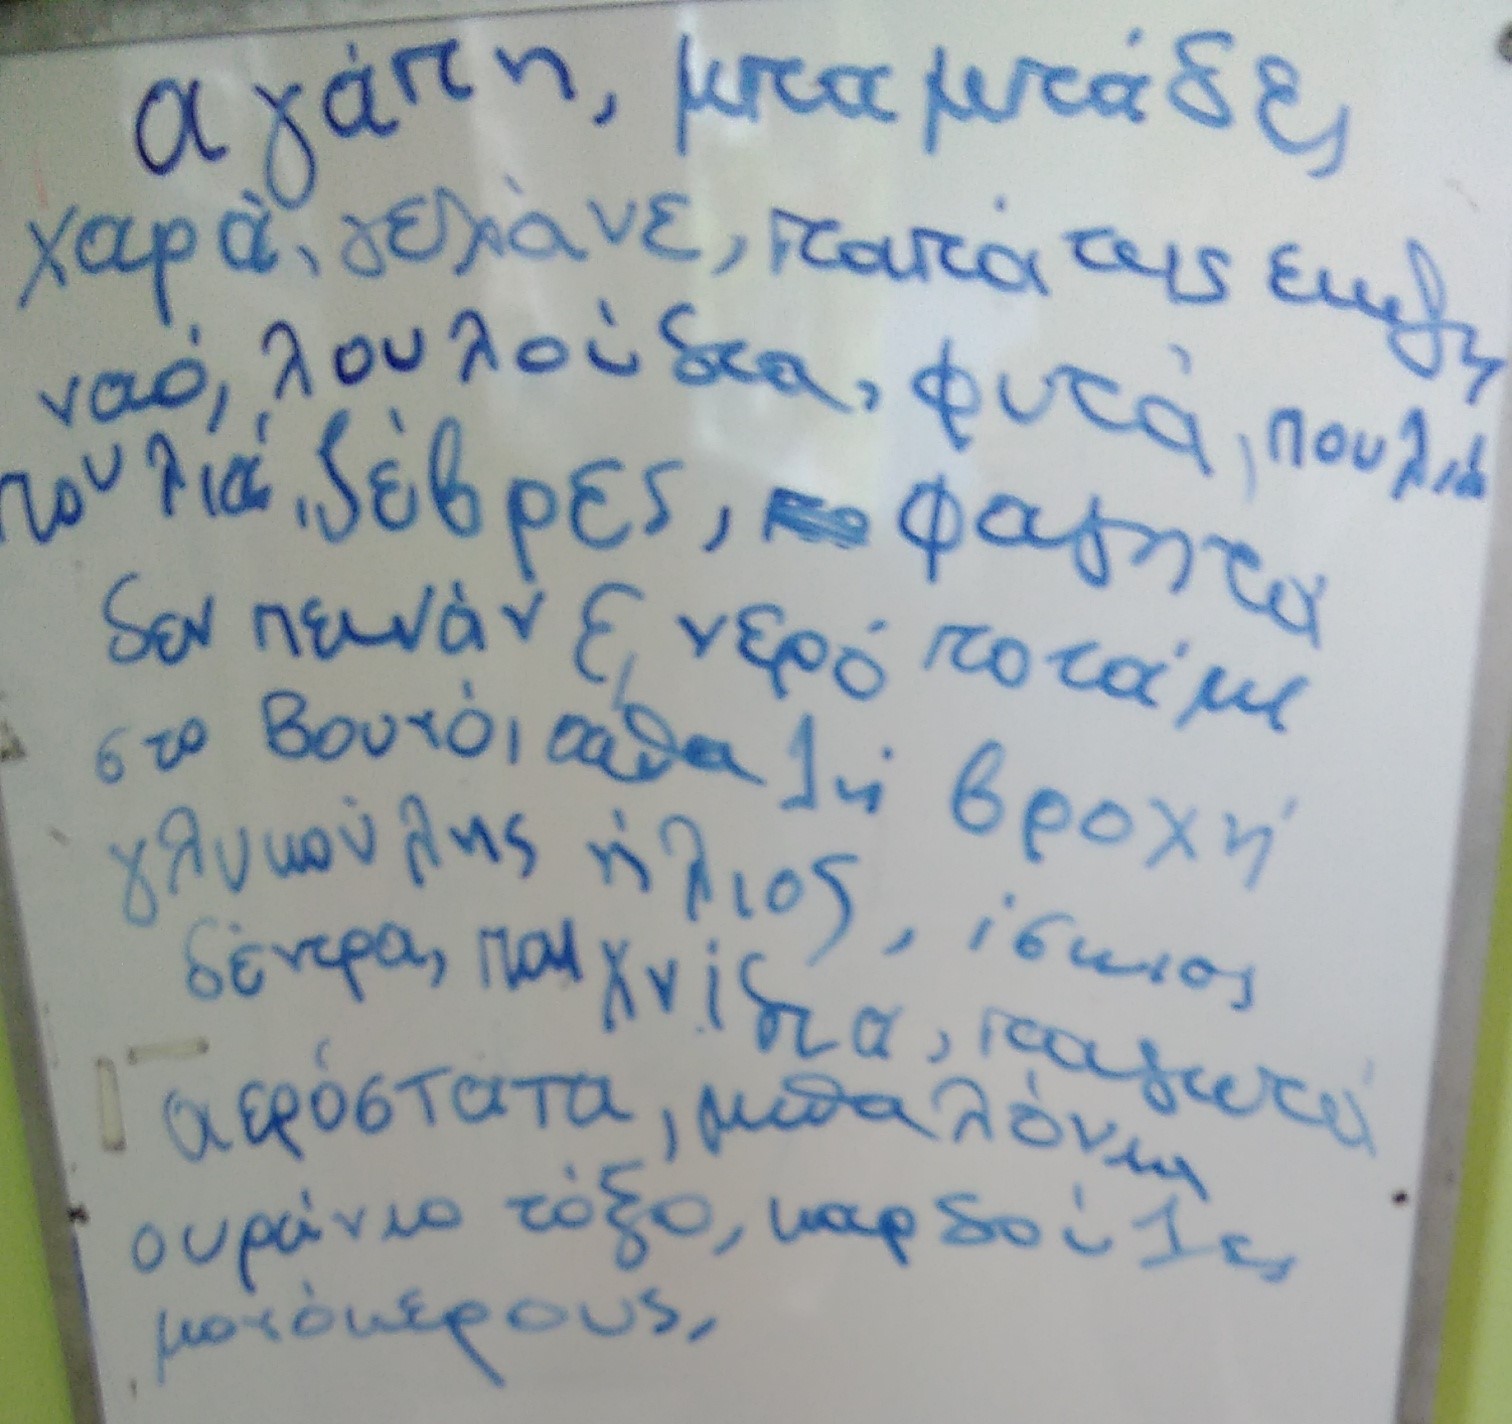 αγάπη, μπαμπάδες
χαρά, γελάνε, παπά της εκκλη
ναό, λουλούδια, φυτά, πουλιά
πουλιά, ζέβρες, φαγητά
δεν πεινάνε, νερό ποτάμι
στο βουνό, βροχή
γλυκούλης ήλιος, ίσκιος
δέντρα, παιχνίδια, παγωτά
αερόστατα, μπαλόνια
ουράνιο τόξο, καρδούλες
μονόκερους,